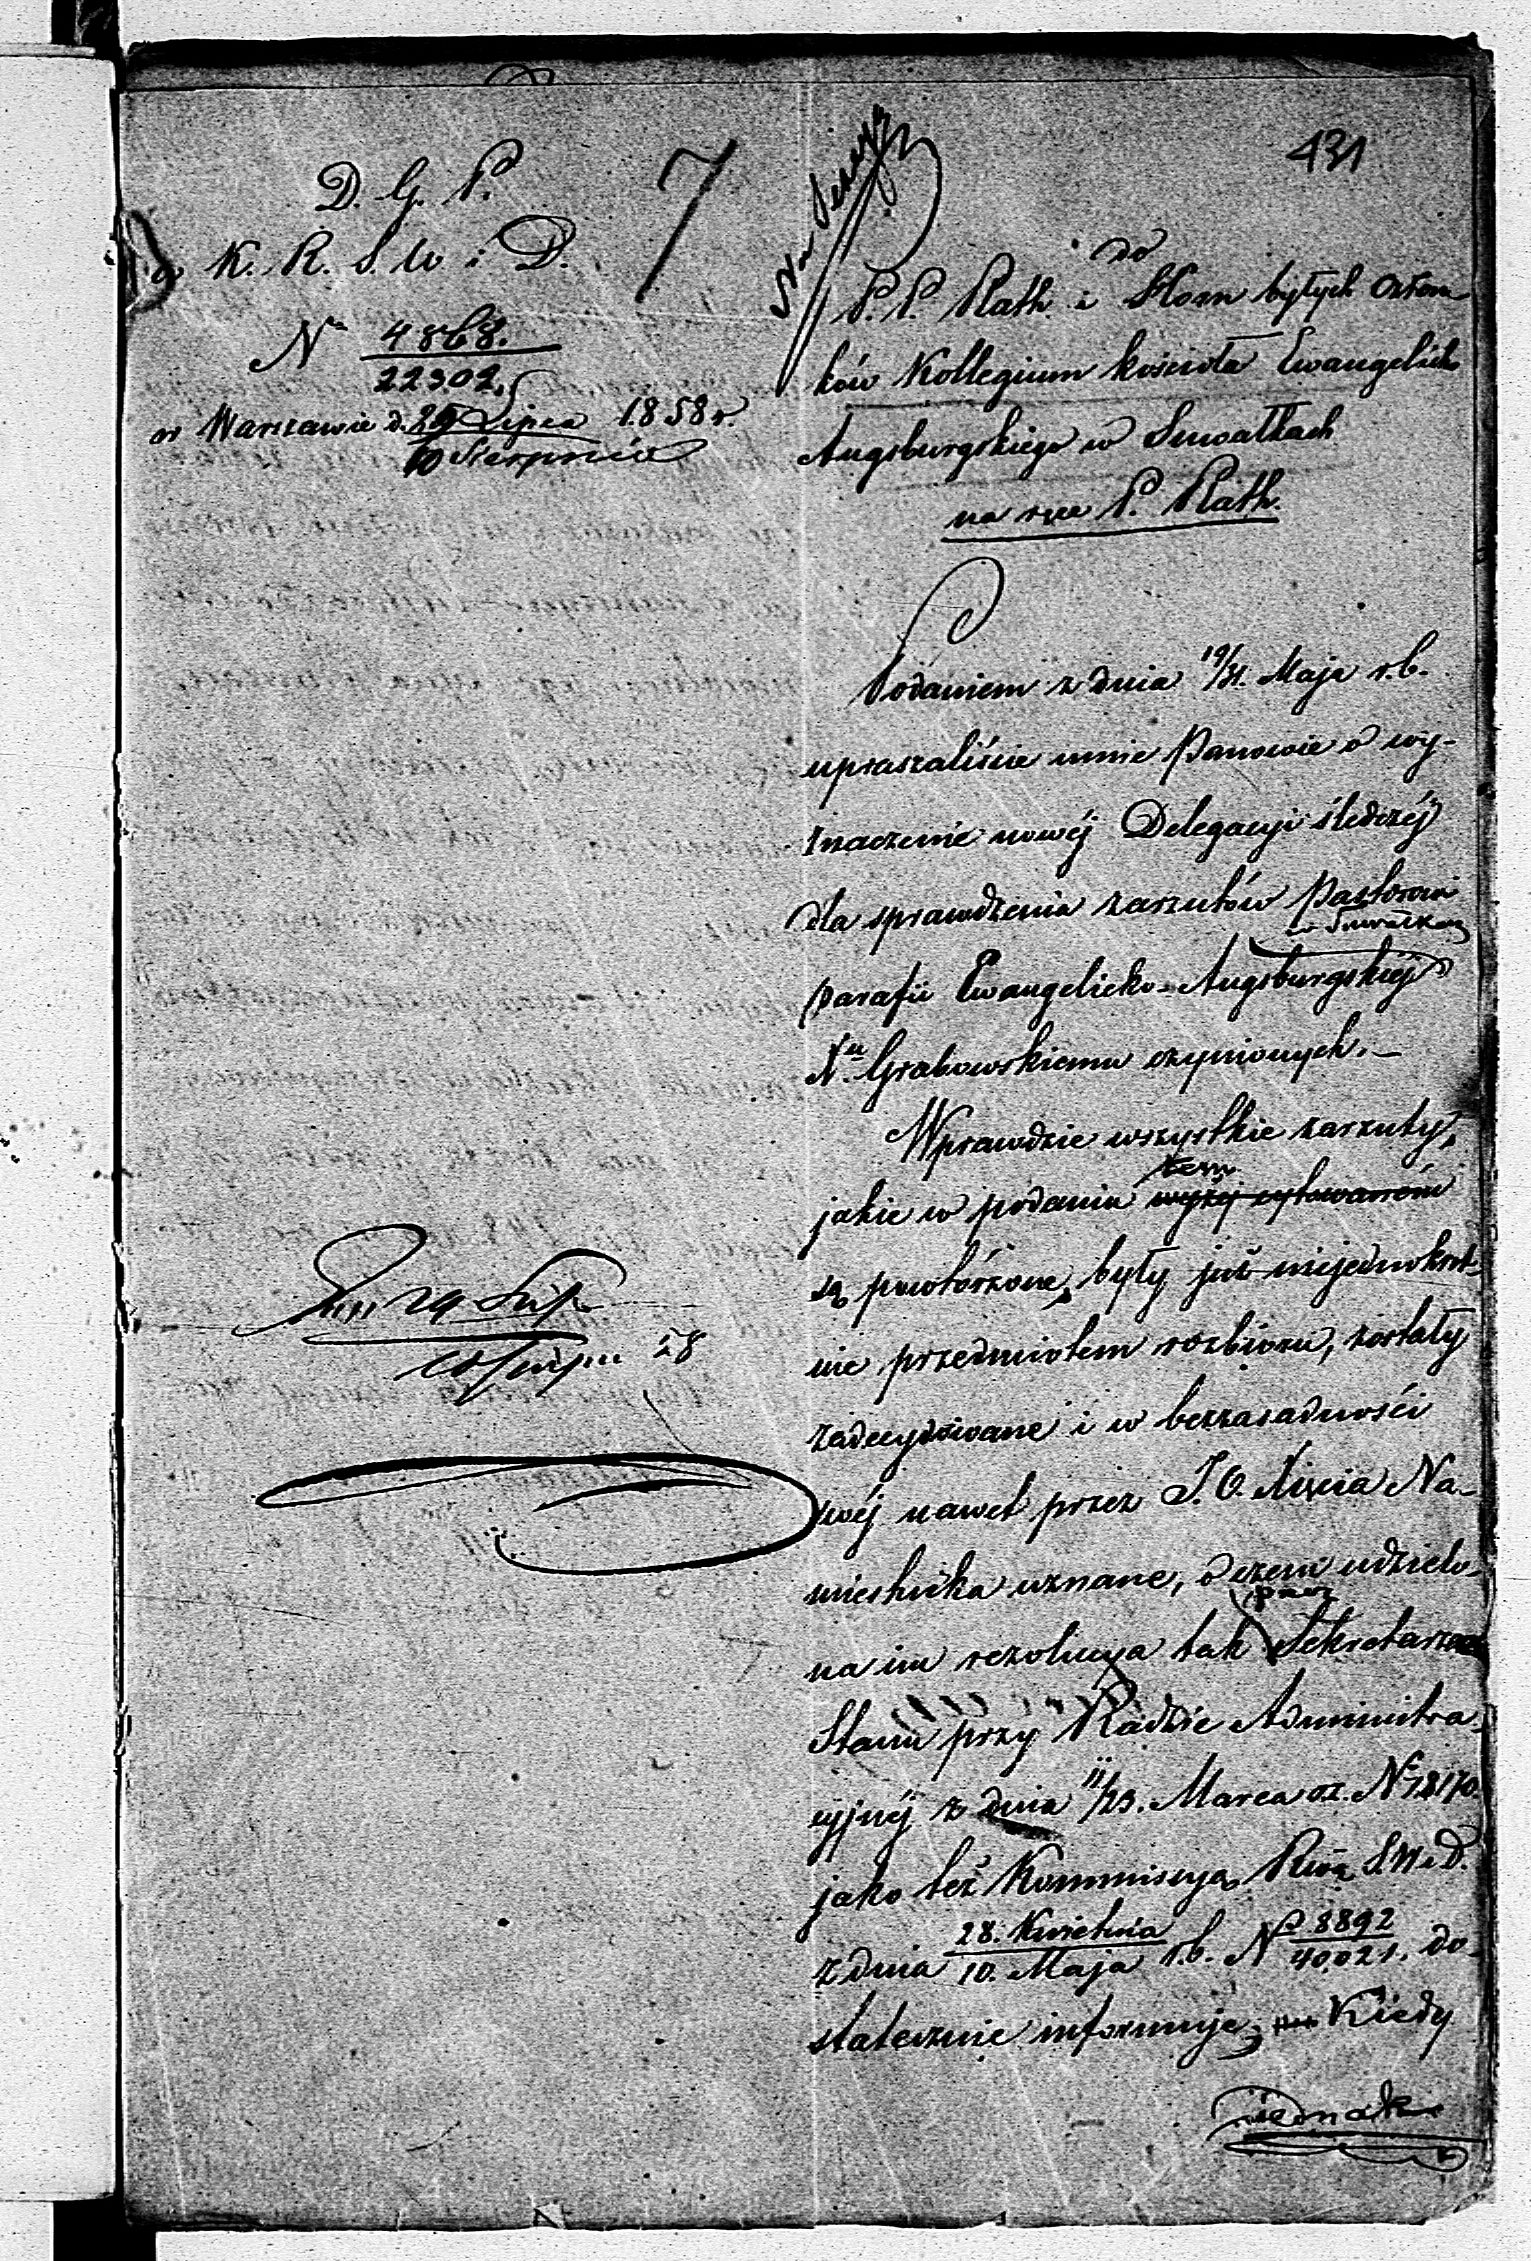 431
D. G. P.
7
w K. R. S. W i D.
Nr 4868.
22302.
w Warszawie d. 29 Lipca 1858 r.
10 Sierpnia
do
P. P. Rath. i Horn byłych Człon
ków Kollegium kościoła Ewangelick
Augsburgskiego w Suwałkach
na ręce P. Rath.
Podaniem z dnia 19/31. Maja r. b.
upraszaliście mnie Panowie o wy-
znaczenie nowéj Delegacyi śledczéj
dla sprawdzenia zarzutów Pastorowi
w Suwałkach
parafii Ewangelicko-Augsburgskiéj
Grabowskiemu czynionych.—
Wprawdzie wszystkie zarzuty,
tem
jakie w podaniu wyżéj cytowaném
są powtórzone, były już niejednokrot-
nie przedmiotem rozbioru, zostały
zadecydowane i w bezzasadności
swéj nawet przez J. O. Xięcia Na-
miestnika uznane, o czem udzielo-
przez
na im rezolucya tak Sekretarza
Stanu przy Radzie Administra-
cyjnéj z dnia 11/23. Marca oz. N 12170.
jako też Kommissyą Rwą S. W. i D.
z dnia 28. Kwietnia
10. Maja r. b. N 8892
40,021. do-
statecznie informuje; Kiedy
jednak
29 Lip
10 Sierpn 58